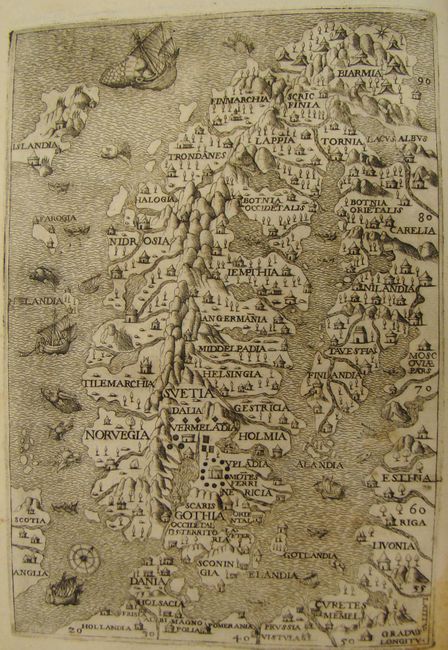 BIARMIA
90
FINMARCHIA
SCRIC
FINIA
LAPPIA
TORNIA
LACVS ALBVS
ISLANDIA
TRONDANES
HALOGIA
BOTNIA
OCCIDETALIS
BOTNIA
ORIETALIS
80
CARELIA
FAROGIA
NIDROSIA
IEMPTHIA
NILANDIA
ANGERMANIA
MIDDELPADIA
TAVESTIA
MOSC
OVIAE
PARS
HELSINGIA
FINLANDIA
70
TILEMARCHIA
SVETIA
DALIA
GESTRICIA
NORVEGIA
VERMELADIA
HOLMIA
VPLADIA
ALANDIA
MOTES
FERRI
ESTHIA
NERICIA
SCARIS
60
GOTHIA
RIGA
SCOTIA
LIVONIA
GOTLANDIA
SCONIN
GIA
ELANDIA
ANGLIA
55
DANIA
HOLSACIA
CVRETES
MEMEL
HOLLANDIA
MAGNO
POLIA
POMERANIA
PRVSSIA
VISTVLA
GRADVS
LONGITV
20
30
40
50